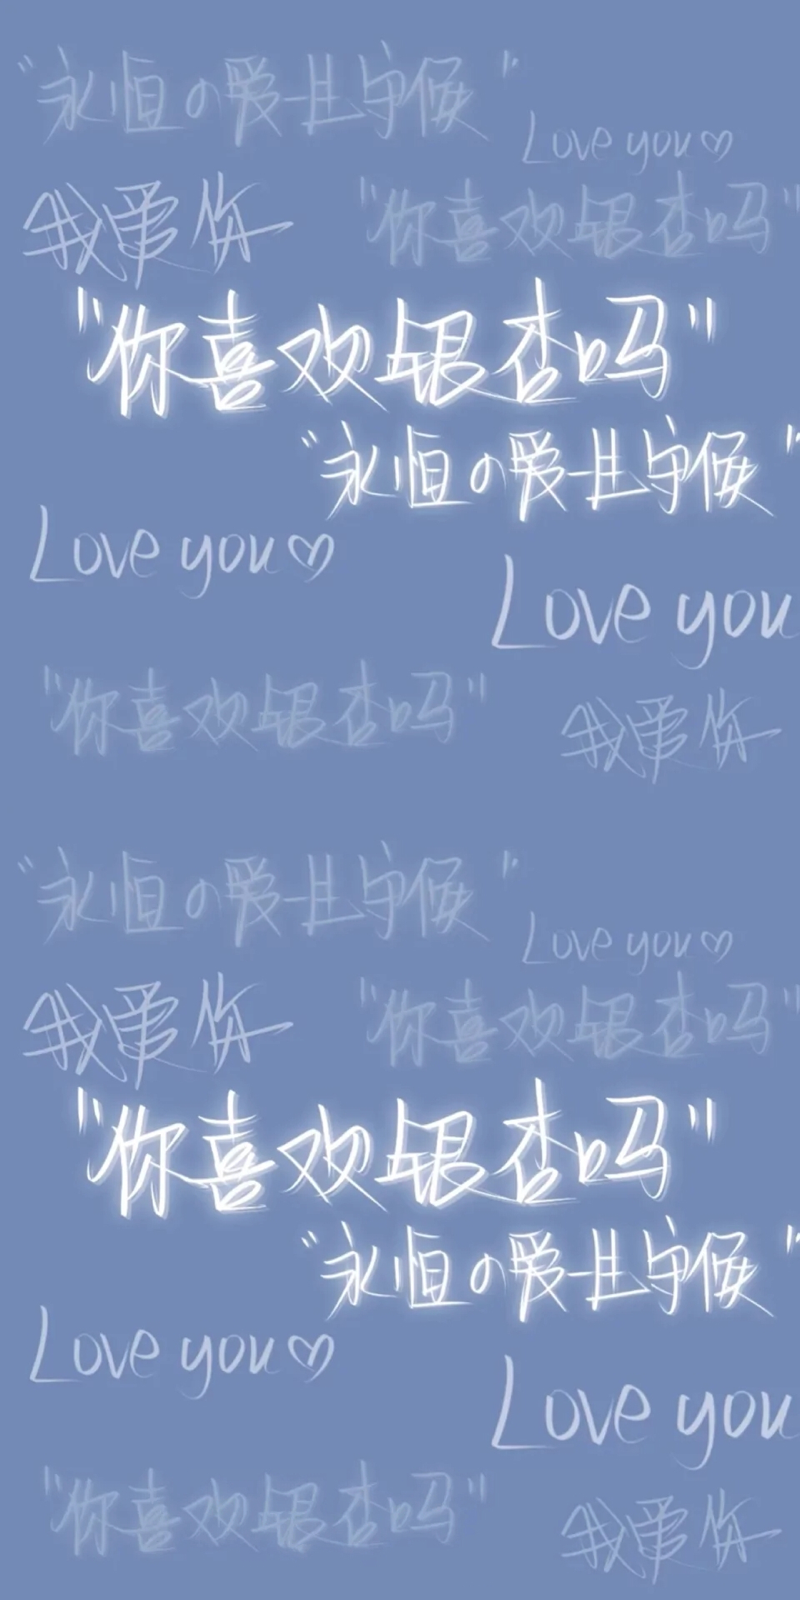 "永恒の爱与守候"
Love you♡
我爱你
"你喜欢银杏吗"
"你喜欢银杏吗"
"永恒の爱与守候"
Love you♡
Love you
"你喜欢银杏吗"
我爱你
"永恒の爱与守候"
Love you♡
我爱你
"你喜欢银杏吗"
"你喜欢银杏吗"
"永恒の爱与守候"
Love you♡
Love you
"你喜欢银杏吗"
我爱你